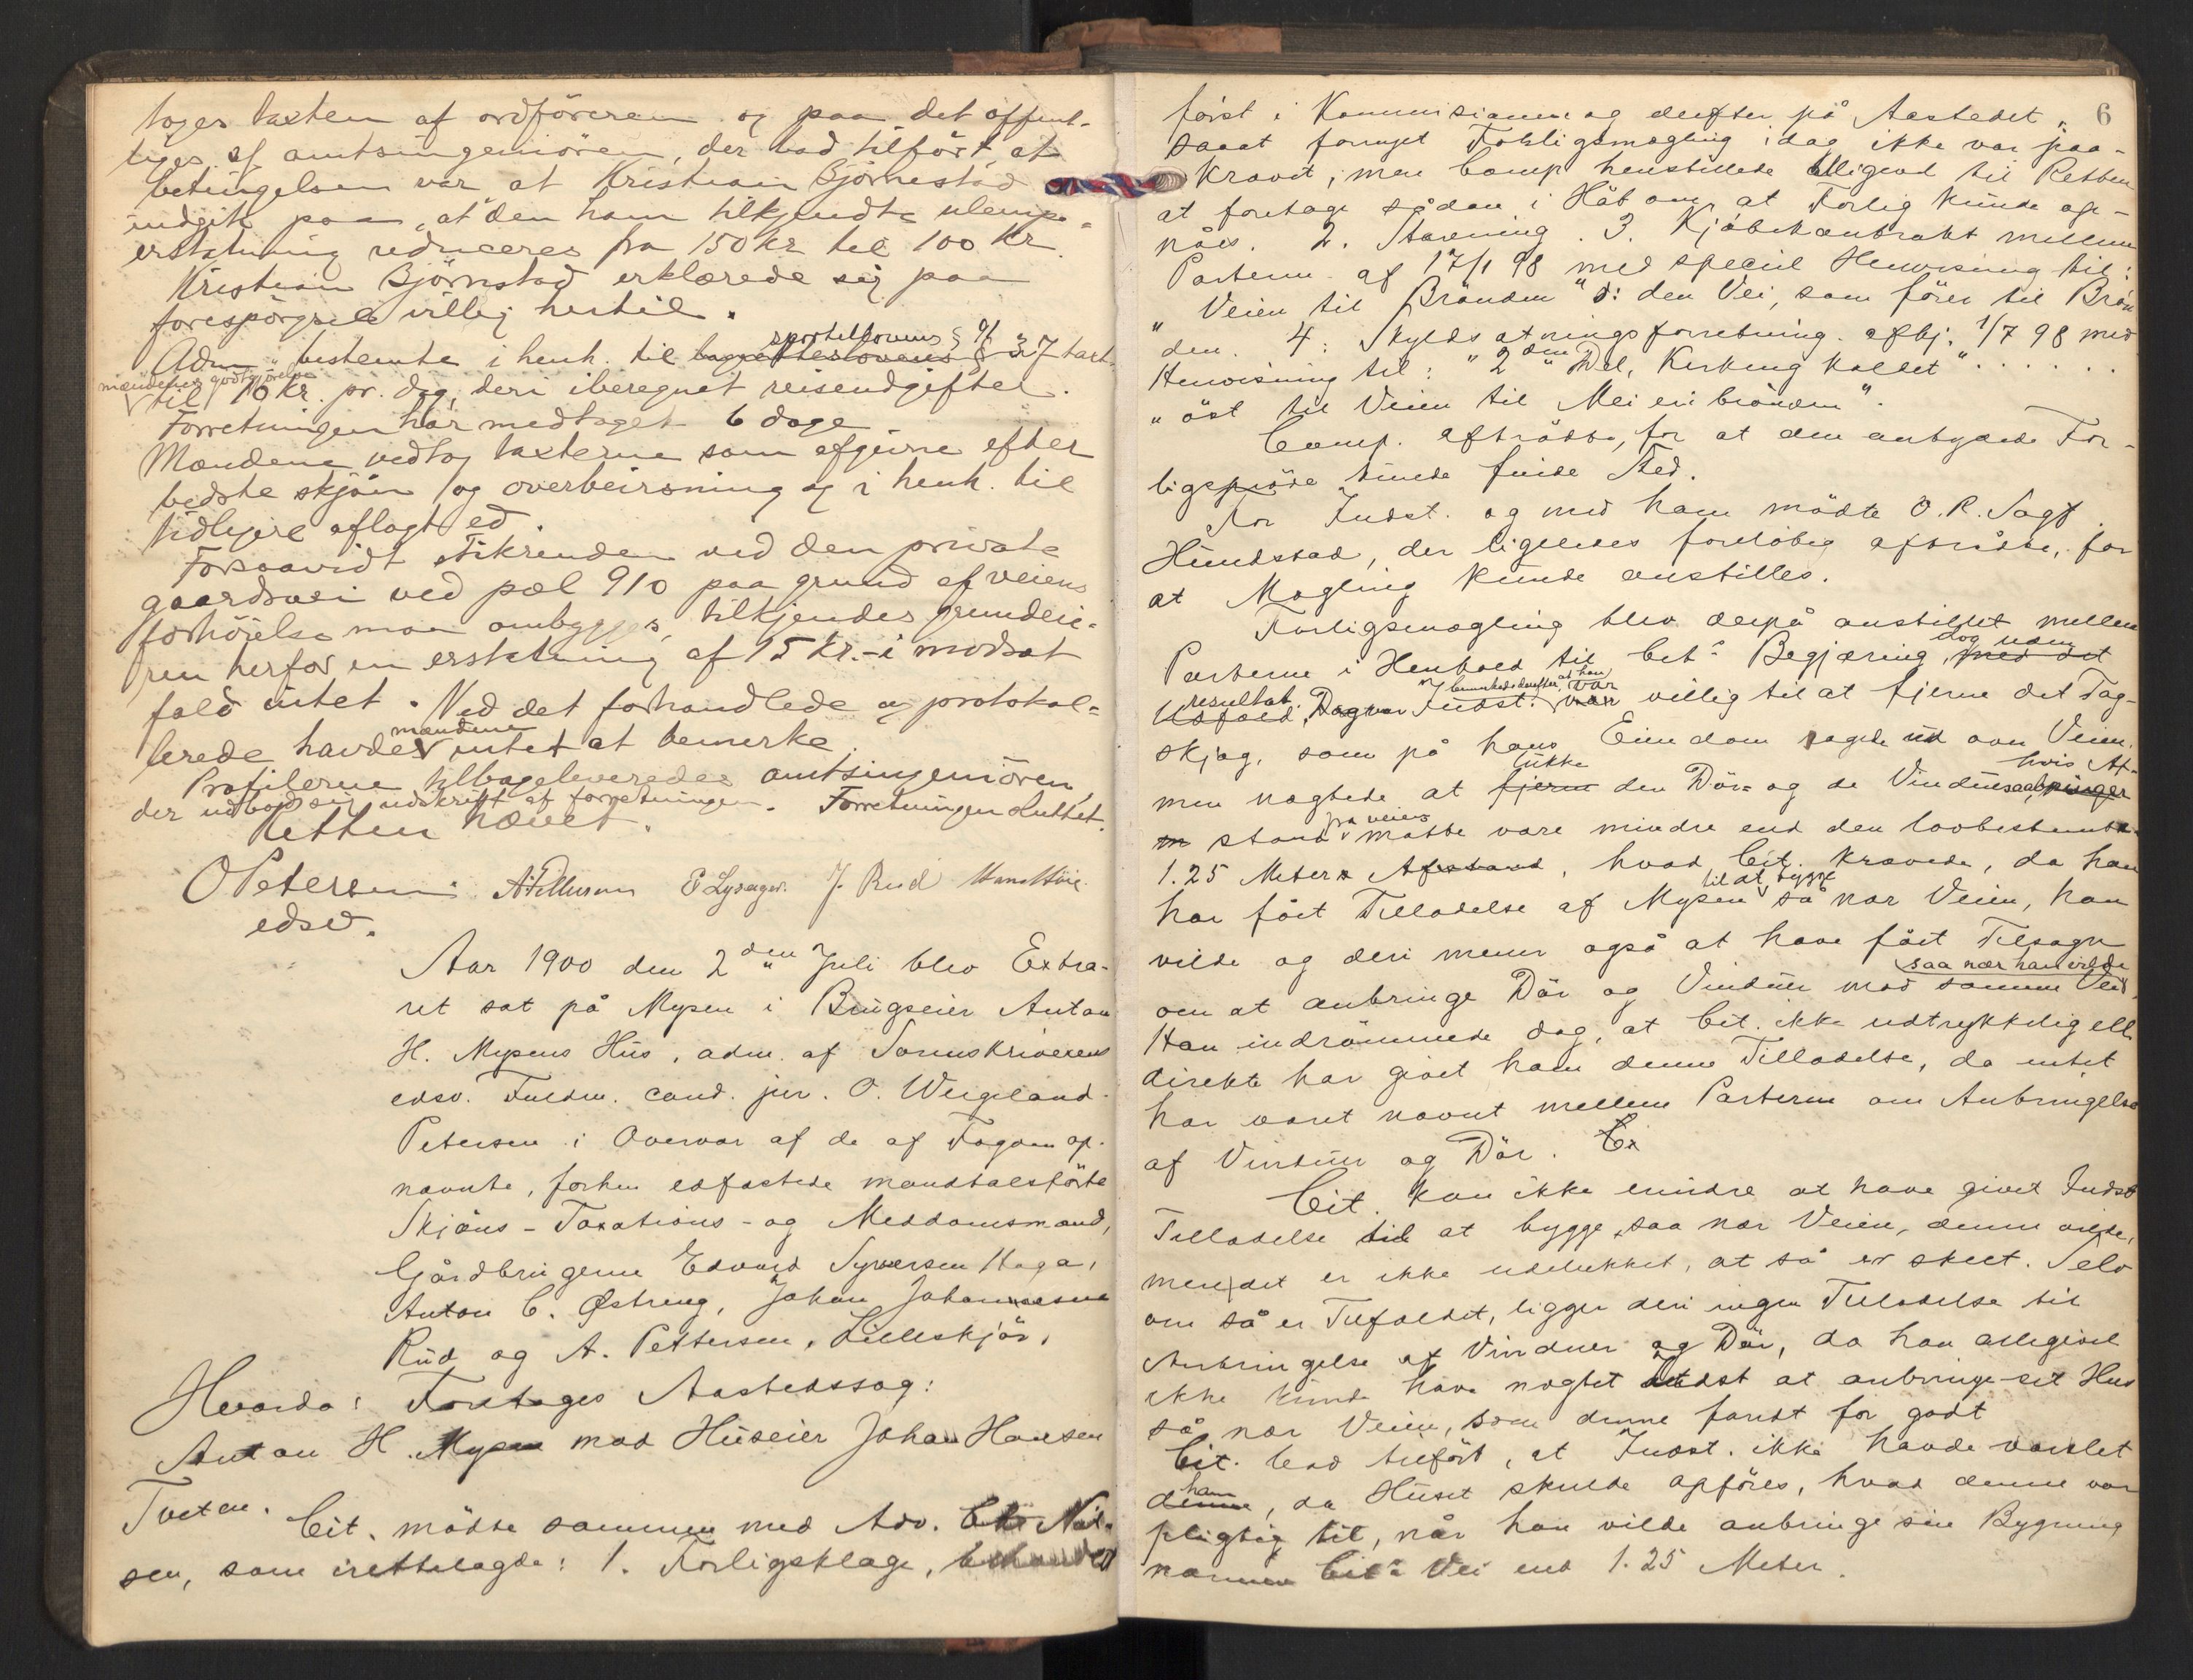 toges taxten af ordföreren og paa det offent-
liges af amtsingeniören, der bad tilfört, at
betingelsen var at Kristian Björnestad
indgik paa, at den ham tilkjendte ulempe-
erstatning reduceres fra 150 kr til 100 kr.
Kristian Björnstad erklærede sig paa
forespörgsel villig hertil.
Adm. bestemte i henh. til lagrettelovens sportellovens § 91 § 37 taxt-
mændenes godtgjörelse til 10 kr. pr. dag, deri iberegnet reiseudgifter.
Forretningen har medtaget 6 dage
Mændene vedtog taxterne som afgivne efter
bedste skjön og overbevisning og i henh. til
tidligere aflagt ed.
Forsaavidt stikrenden ved den private
gaardsvei ved pæl 910 paa grund af veiens
forhöielse maa ombygges, tilkjendes grundeie-
ren herfor en erstatning af 15 kr. - i modsat
fald intet. Ved det forhandlede og protokol-
lerede havde mændene intet at bemerke.
Profilerne tilbageleveredes amtsingeniören,
der udbad sig udskrift af forretningen. Forretningen sluttet.
Retten hævet.
O Petersen A Pettersen E Lysager J. Rud
edsv.
Aar 1900 den 2den Juli blev Extra-
ret sat på Mysen i Brugseier Anton
H. Mysens Hus, adm. af Sorenskriverens
edsv. Fuldm. cand. jur. O. Weigeland-
Petersen i Overvær af de af Fogden op-
nævnte, forhen edfæstede mandtalsförte
Skjöns- Taxations- og Meddomsmænd,
Gårdbrugerne Edvard Syversen Haga,
Anton C. Østreng, Johan Johannesen
Rud og A. Pettersen, Lilleskjör.
Hvorda: Foretages Aastedssag:
Anton H. Mysen mod Huseier Johan Hansen
Tveten.
Cit. mödte sammen med Adv. Niel-
sen, som irettelagde: 1. Forligsklage, behandlet
6
först i Kommissionen og derefter på Aastedet,
saaat fornyet Forligsmægling idag ikke var paa-
krævet, men Comp henstillede alligevel til Retten
at foretage sådan i Håb om, at Forlig kunde op-
nåes. 2. Stævning. 3. Kjöbekontrakt mellem
Parterne af 17/1 98 med speciel Henvisning til:
"Veien til Brönden" ɔ: den Vei, som förer til Brön
den. 4. Skyldsætningsforretning afhj. 1/7 98 med
Henvisning til: "2den Del, Kirkeng kaldet" . . . . . .
"öst til Veien til Meieribrönden".
Comp. aftrådte, for at den antydede For-
ligspröve kunde finde Sted.
For Indst. og med ham mödte O. R. Sagf.
Hundstad, der ligeledes foreløbig aftrådte, for
at Mægling kunde anstilles.
Forligsmægling blev derpå anstillet mellem
Parterne i Henhold til Citˢ Begjæring, med det dog uden
Udfald resultat. Dog var Indst. bemerkede derefter, at han var villig til at fjerne det Tag-
skjæg, som på hans Eiendom ragede ud over Veien,
men nægtede at fjerne lukke den Dör og de Vinduesaabninger hvis Af-
stand på veien måtte være mindre end den lovbestemte
1.25 Meters Afstand, hvad Cit. krævede, da han
har fået Tilladelse af Mysen til at bygge så nær Veien, han
vilde og deri mener også at have fået Tilsagn
om at anbringe Dör og Vinduer mod samme Vei saa nær han vilde.
Han indrömmede dog, at Cit. ikke udtrykkelig ell.
direkte har givet ham denne Tilladelse, da intet
har været nævnt mellem Parterne om Anbringelse
af Vinduer og Dör.
Cit. kan ikke erindre at have givet Indst
Tilladelse til at bygge saa nær Veien, denne vilde,
men det er ikke udelukket, at så er skeet. Selv
om så er Tilfældet, ligger deri ingen Tilladelse til
Anbringelse af Vinduer og Dör, da han alligevel
ikke kunde have nægtet Indst at anbringe sit Hus
så nær Veien, som denne fandt for godt
Cit. bad tilfört, at Indst. ikke havde varslet
denne ham, da Huset skulde opföres, hvad denne var
pligtig til, når han vilde anbringe sin Bygning
nærmere Citˢ Vei end 1.25 Meter.